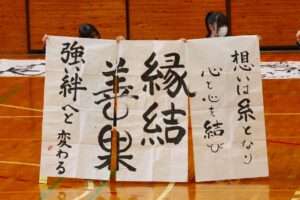 想いは糸となり
心と心を結び
縁結
善果
強い絆へと変わる